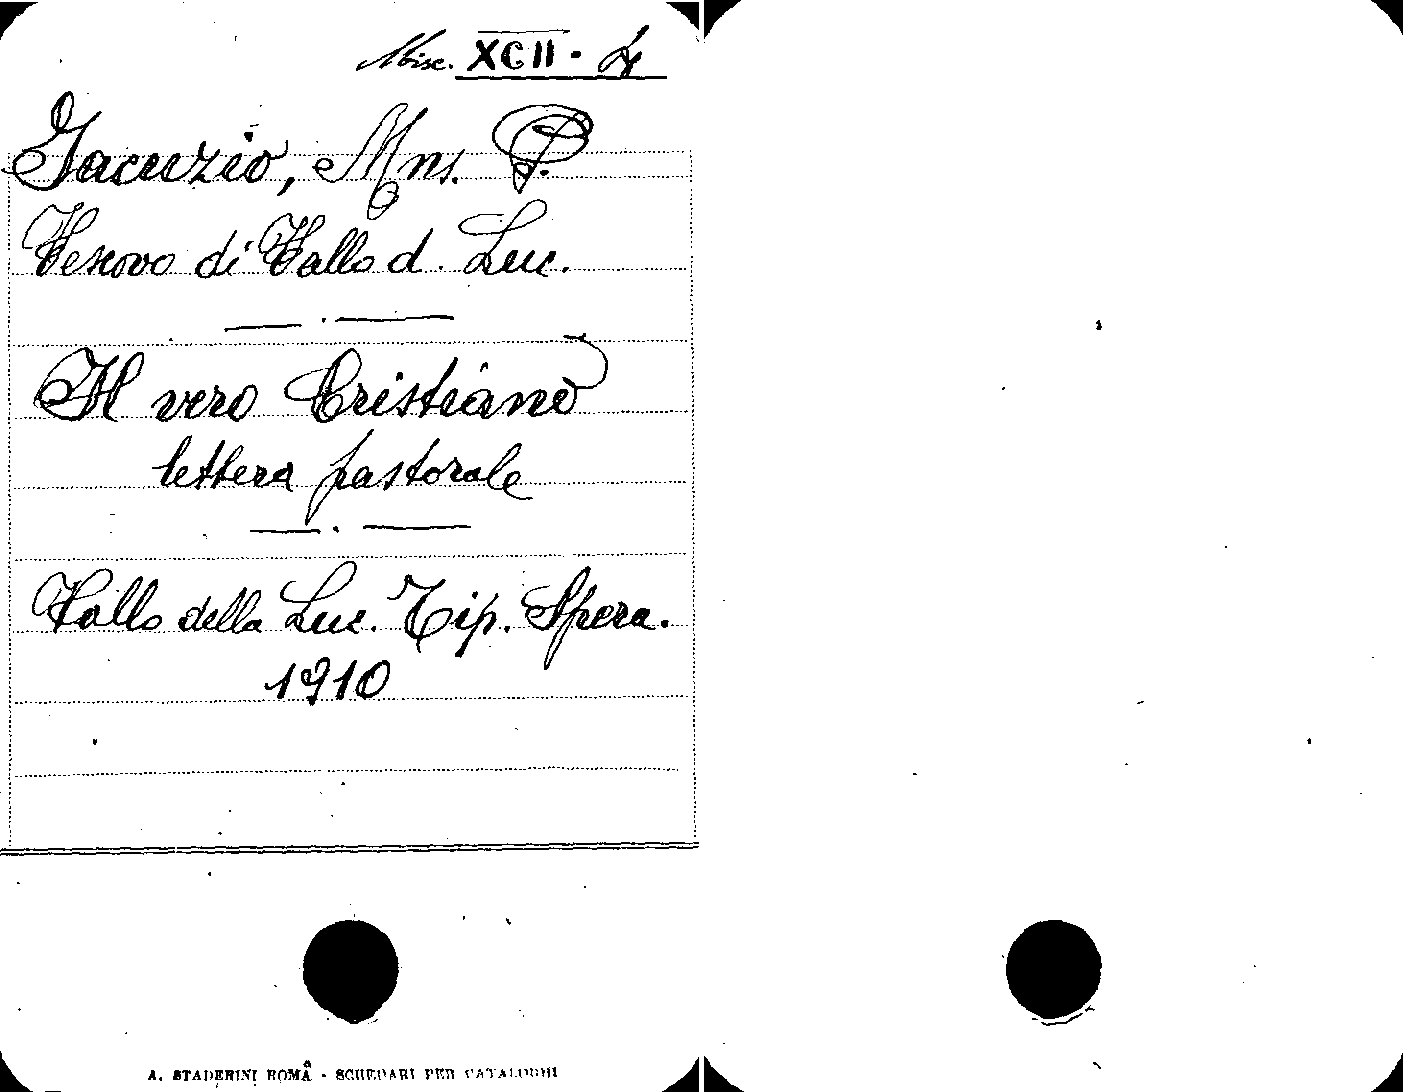 Misc. XCII - 4
Jacuzio, Mns. P.
Vescovo di Vallo d. Luc.
Il vero Cristiano
lettera pastorale
Vallo della Luc. Tip. Spera.
1910
A. STADERINI ROMA - SCHEDARI PER CATALOGHI